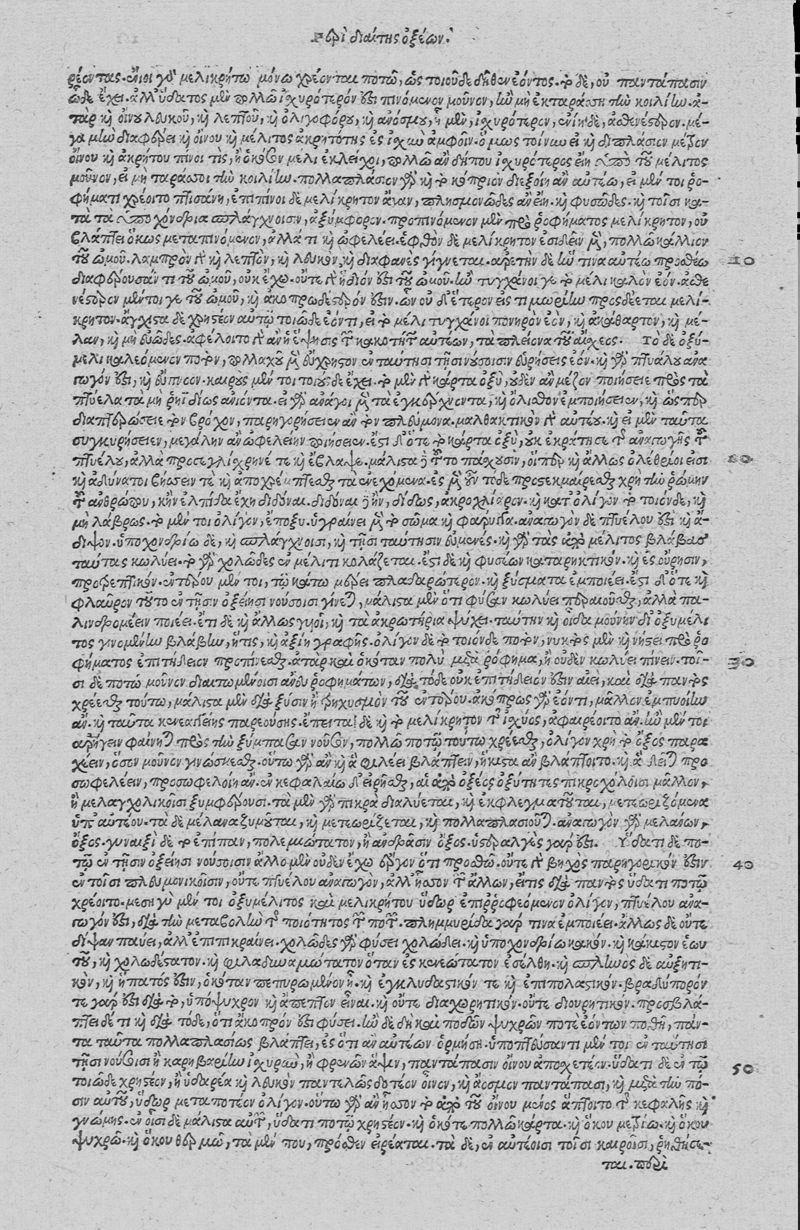 περὶ διαίτης ὀξέων.
ρέοντας. ἔνιοι γὰρ μελικρήτῳ μόνῳ χρέονται ποτῷ, ὡς τοιοῦδε δῆθεν ἐόντος. τὸ δὲ, οὐ παντάπασιν
ὧδε ἔχει. ἀλλ' ὕδατος μὲν πολλῷ ἰσχυρότερόν ἐστι πινόμενον μοῦνον, ἢν μὴ ἐκταράσσῃ τὴν κοιλίην. ἀ-
τὰρ καὶ οἴνου λευκοῦ, καὶ λεπτοῦ, καὶ ὀλιγοφόρου, καὶ ἀνόσμου, ᾗ μὲν, ἰσχυρότερον, ἔνι ᾗ δὲ, ἀσθενέστερον. με-
γάλην διαφέρει καὶ οἴνου καὶ μέλιτος ἀκρητότης ἐς ἰσχὺν ἀμφοῖν. ὅμως τοίνυν εἰ καὶ διπλάσιον μέτρον
οἴνου καὶ ἀκρήτου πίνοι τις, ἢ ὁκόσον μέλι ἐκλείχοι, πολλῷ ἂν δήπου ἰσχυρότερος εἴη ὑπὸ τοῦ μέλιτος
μοῦνον, εἰ μὴ ταράσσοι τὴν κοιλίην. πολλαπλάσιον γὰρ καὶ τὸ κόπριον διεξίοι ἂν αὐτέῳ, εἰ μέν τοι ῥο-
φήματι χρέοιτο πτισάνῃ, ἐπιπίνοι δὲ μελίκρητον ἄγαν, πλησμονώδες ἂν εἴη. καὶ φυσῶδες. καὶ τοῖσι κα-
τὰ τὰ ὑποχόνδρια σπλάγχνοισιν, ἀξύμφορον. προπινόμενον μὲν πρὸ ῥοφήματος μελίκρητον, οὐ
βλάπτει ὅκως μεταπινόμενον, ἀλλά τι καὶ ὠφελέει. ἑφθὸν δὲ μελίκρητον ἐσιδέειν μὲν, πολλῷ κάλλιον
τοῦ ὠμοῦ. λαμπρόν τε καὶ λεπτὸν, καὶ λευκὸν, καὶ διαφανὲς γίγνεται. ἀρετὴν δὲ ἥν τινα αὐτέῳ προσθέω
διαφέρουσάν τι τοῦ ὠμοῦ, οὐκ ἔχω. οὔτε τε ἥδιόν ἐστι τοῦ ὠμοῦ. ἢν τυγχάνοι γε τὸ μέλι καλὸν ἐόν. ἀσθε
νέστερον μέντοι γε τοῦ ὠμοῦ, καὶ ἀκοπρωδέστερόν ἐστιν. ὧν οὐδ' ἕτερον εἰς τιμωρίην προσδέεται μελί-
κρητον. ἄγχιστα δὲ χρηστέον αὐτῷ τοιῷδε ἐόντι, εἰ τὸ μέλι τυγχάνοι πονηρὸν ἐὸν, καὶ ἀκάθαρτον, καὶ μέ-
λαν, καὶ μὴ εὐῶδες. ἀφέλοιτό τε ἂν ἡ ἕψησις τῆς κακότητος αὐτέων, τὰ πλείονα τοῦ αἴσχεος. Τὸ δὲ ὀξύ-
μελι καλεόμενον ποτὸν, πολλαχοῦ μὲν εὔχρηστον ἐν ταύτῃσι τῇσι νούσοισιν εὑρήσεις ἐόν. καὶ γὰρ πτυάλου ἀνα
γωγόν ἐστι, καὶ εὔπνοον. καιροὺς μέν τοι τοιούσδε ἔχει. τὸ μέν τε κάρτα ὀξὺ, οὐδὲν ἂν μέζον ποιήσειε πρὸς τὰ
πτύελα τὰ μὴ ῥηϊδίως ἀνιόντα. εἰ γὰρ ἀνάγοι μὲν τὰ ἐγκέρχνοντα, καὶ ὄλισθον ἐμποιήσειεν, καὶ ὥσπερ
διαπτερώσειε τὸν βρόγχον, παρηγορήσειεν ἂν τὸν πλεύμονα. μαλθακτικόν τε αὐτέου. καὶ εἰ μὲν ταῦτα
συγκυρήσειεν, μεγάλην ἂν ὠφελείην ποιήσειεν. ἔστι δ' ὅτε τὸ κάρτα ὀξὺ, οὐκ ἐκράτησε τῆς ἀναγωγῆς τοῦ
πτυέλου, ἀλλὰ προσεγλίσχρηνέ τε καὶ ἔβλαψε. μάλιστα δὲ τοῦτο πάσχουσιν, οἵπερ καὶ ἄλλως ὀλέθριοί εἰσι
καὶ ἀδύνατοι βήσσειν τε καὶ ἀποχρέμπτεσθαι τὰ ἐνεχόμενα. ἐς μὲν οὖν τόδε προστεκμαίρεσθαι χρὴ τὴν ῥώμην
τοῦ ἀνθρώπου, κἢν ἐλπίδα ἔχῃ διδόναι. διδόναι δὲ ἢν, διδῷς, ἀκροχλίαρον. καὶ κατ' ὀλίγον τὸ τοιόνδε, καὶ
μὴ λάβρως. τὸ μέν τοι ὀλίγον, ἔποξυ. ὑγραίνει μὲν τὸ στόμα καὶ φάρυγγα. ἀναγωγὸν δὲ πτυέλου ἐστὶ καὶ ἄ-
διψον. ὑποχονδρίῳ δὲ, καὶ σπλάγχνοισι, καὶ τῇσι ταύτῃσιν εὐμενές. καὶ γὰρ τὰς ἀπὸ μέλιτος βλάβας
ταύτας κωλύει. τὸ γὰρ χολῶδες ἐν μέλιτι κολάζεται. ἔστι δὲ καὶ φυσέων καταρηκτικόν. καὶ ἐς οὔρησιν,
προτρεπτικόν. ἐντέρου μέν τοι, τῷ κάτω μέρει πλαδαρώτερον. καὶ ξύσματα ἐμποιέει. ἔστι δ' ὅτε καὶ
φλαῦρον τοῦτο ἐν τῇσιν ὀξείῃσι νούσοισι γίνεται, μάλιστα μὲν ὅτι φύσαν κωλύει περαιοῦσθαι, ἀλλὰ πα-
λινδρομέειν ποιέει. ἔτι δὲ καὶ ἄλλως γυιοῖ, καὶ τὰ ἀκρωτήρια ψύχει. ταύτην καὶ οἶδα μούνην δι' ὀξυμέλι
τος γινομένην βλάβην, ἥτις, καὶ ἀξίη γραφῆς. ὀλίγον δὲ τὸ τοιόνδε ποτὸν, νυκτὸς μὲν καὶ νήστει πρὸ ῥο
φήματος ἐπιτήδειον προπίνεσθαι. ἀτὰρ καὶ ὁκόταν πολὺ μετὰ ῥόφημα ᾖ, οὐδὲν κωλύει πίνειν. τοῖ-
σι δὲ ποτῷ μοῦνον διαιτωμένοισι ἄνευ ῥοφημάτων, διὰ τόδε οὐκ ἐπιτήδειόν ἐστιν αἰεὶ, καὶ διὰ παντὸς
χρέεσθαι τούτῳ, μάλιστα μὲν διὰ ξύσιν ἢ τρηχυσμὸν τοῦ ἐντέρου. ἀκόπρῳ γὰρ ἐόντι, μᾶλλον ἐμποιοίη
ἂν. καὶ ταῦτα κενεαγγείης παρεούσης. ἔπειτα δὲ καὶ τὸ μελίκρητον τῆς ἰσχύος, ἀφαιρέοιτο ἄν. ἢν μέν τοι
ἀρήγειν φαίνηται πρὸς τὴν ξύμπασαν νοῦσον, πολλῷ ποτῷ τούτῳ χρέεσθαι, ὀλίγον χρὴ τὸ ὄξος παρα
χέειν, ὅσον μοῦνον γινώσκεσθαι. οὕτω γὰρ ἂν καὶ ἃ φιλέει βλάπτειν, ἥκιστα ἂν βλάπτοιτο. καὶ ἃ δεῖται προ
σωφελέειν, προσωφελοίη ἄν. ἐν κεφαλαίῳ δ' εἰρῆσθαι, αἱ ἀπὸ ὄξεος ὀξύτητες πικροχόλοισι μᾶλλον,
ἢ μελαγχολικοῖσι ξυμφέρουσι. τὰ μὲν γὰρ πικρὰ διαλύεται, καὶ ἐκφλεγματοῦται, μετεωριζόμενα
ὑπ' αὐτέου. τὰ δὲ μέλανα ζυμοῦται, καὶ μετεωρίζεται, καὶ πολλαπλασιοῦται. ἀναγωγὸν γὰρ μελανῶν,
ὄξος. γυναιξὶ δὲ τὸ ἐπίπαν, πολεμιώτατον, ἢ ἀνδράσιν ὄξος. ὑστεραλγὲς γάρ ἐστι. Ὕδατι δὲ πο-
τῷ ἐν τῇσιν ὀξείῃσι νούσοισιν ἄλλο μὲν οὐδὲν ἔχω ἔργον ὅτι προσθῶ. οὔτε τε βηχὸς παρηγορικόν ἐστιν
ἐν τοῖσι πλευμονικοῖσιν, οὔτε πτυέλου ἀναγωγὸν, ἀλλ' ἧσσον τῶν ἄλλων, εἴ τις διὰ παντὸς ὕδατι ποτῷ
χρέοιτο. μεσηγὺ μέν τοι ὀξυμέλιτος καὶ μελικρήτου ὕδωρ ἐπιρροφεόμενον ὀλίγον, πτυέλου ἀνα-
γωγόν ἐστι, διὰ τὴν μεταβολὴν τῆς ποιότητος τοῦ ποτοῦ. πλημμυρίδα γάρ τινα ἐμποιέει. ἄλλως δὲ οὔτε
δίψαν παύει, ἀλλ' ἐπιπικραίνει. χολῶδες γὰρ φύσει χολώδει. καὶ ὑποχονδρίῳ κακόν. καὶ κάκιστον ἑωυ
τοῦ, καὶ χολωδέστατον. καὶ φιλαδυναμώτατον ὅταν ἐς κενεώτατον ἐσέλθῃ. καὶ σπληνὸς δὲ αὐξητι-
κὸν, καὶ ἥπατός ἐστιν, ὁκόταν πεπυρωμένον ᾖ. καὶ ἐγκλυδαστικόν τε καὶ ἐπιπολαστικόν. βραδύπορόν
τε γάρ ἐστι διὰ τὸ, ὑπόψυχρον καὶ ἄπεπτον εἶναι. καὶ οὔτε διαχωρητικὸν. οὔτε διουρητικόν. προσβλά-
πτει δέ τι καὶ διὰ τόδε, ὅτι ἄκοπρόν ἐστι φύσει. ἢν δὲ δὴ καὶ ποδῶν ψυχρῶν ποτὲ ἐόντων ποθῇ, πάν-
τα ταῦτα πολλαπλασίως βλάπτει, ἐς ὅτι ἂν αὐτέων ὁρμήσῃ. ὑποπτεύσαντι μέν τοι ἐν ταύτῃσι
τῇσι νούσοισι ἢ καρηβαρίην ἰσχυρὴν, ἢ φρενῶν ἅψιν, παντάπασιν οἴνου ἀποσχετέον. ὕδατι δὲ ἐν τῷ
τοιῷδε χρηστέον, ἢ ὑδαρέα καὶ λευκὸν παντελῶς δοτέον οἶνον, καὶ ἄοσμον παντάπασι, καὶ μετὰ τὴν πό-
σιν αὐτοῦ, ὕδωρ μεταποτέον ὀλίγον. οὕτω γὰρ ἂν ἧσσον τὸ ἀπὸ τοῦ οἴνου μένος ἅπτοιτο τῆς κεφαλῆς καὶ
γνώμης. ἐν οἷσι δὲ μάλιστα αὐτῷ, ὕδατι ποτῷ χρηστέον. καὶ ὁκότε πολλῷ κάρτα. καὶ ὅκου μετρίῳ. καὶ ὅκου
ψυχρῷ. καὶ ὅκου θερμῷ, τὰ μέν που, πρόσθεν εἰρέαται. τὰ δὲ, ἐν αὐτέοισι τοῖσι καιροῖσι, ῥηθήσε-
ται. περὶ
10
20
30
40
50